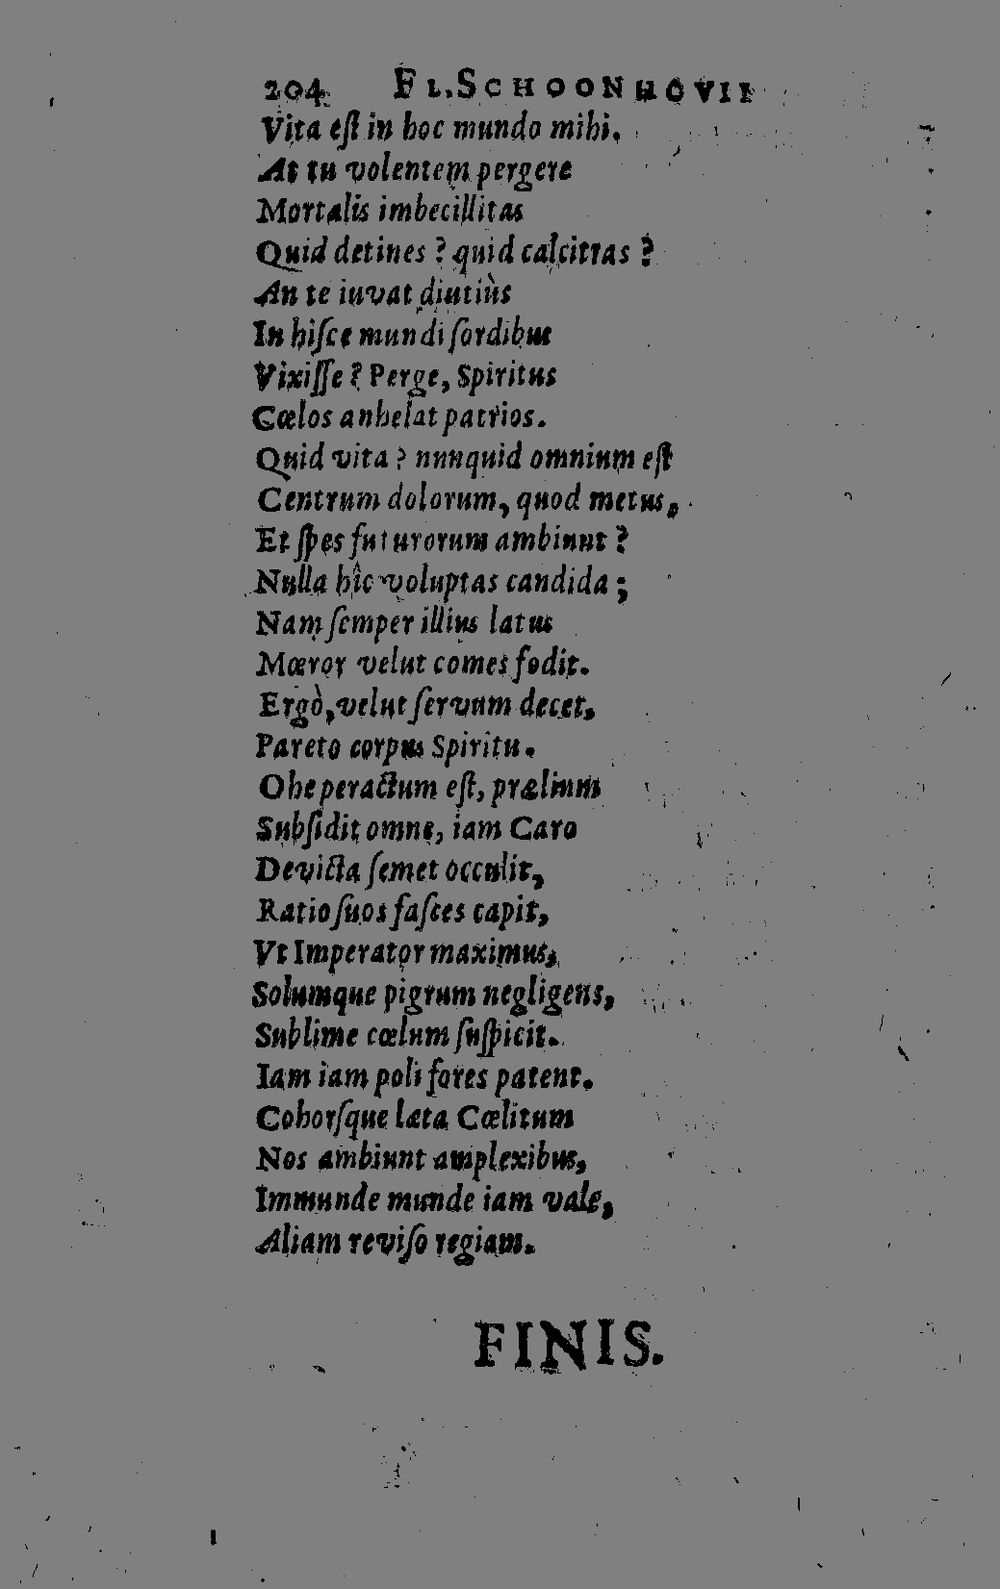 204 FL. SCHOONHOVII
Vita eſt in hoc mundo mihi.
At tu volentem pergere
Mortalis imbecillitas
Quid detines? quid calcitras?
An te iuvat diutiùs
In hiſce mundi ſordibus
Vixiſſe? Perge, Spiritus
Cœlos anhelat patrios.
Quid vita? nunquid omnium eſt
Centrum dolorum, quod metus,
Et ſpes futurorum ambiunt?
Nulla hîc voluptas candida;
Nam ſemper illius latus
Mœror velut comes fodit.
Ergò, velut ſervum decet,
Pareto corpus Spiritu.
Ohe peractum eſt, prælium
Subſidit omne, iam Caro
Devicta ſemet occulit,
Ratio ſuos faſces capit,
Vt Imperator maximus,
Solumque pigrum negligens,
Sublime cœlum ſuſpicit.
Iam iam poli fores patent.
Cohorſque læta Cœlitum
Nos ambiunt amplexibus,
Immunde munde iam vale,
Aliam reviſo regiam.
FINIS.